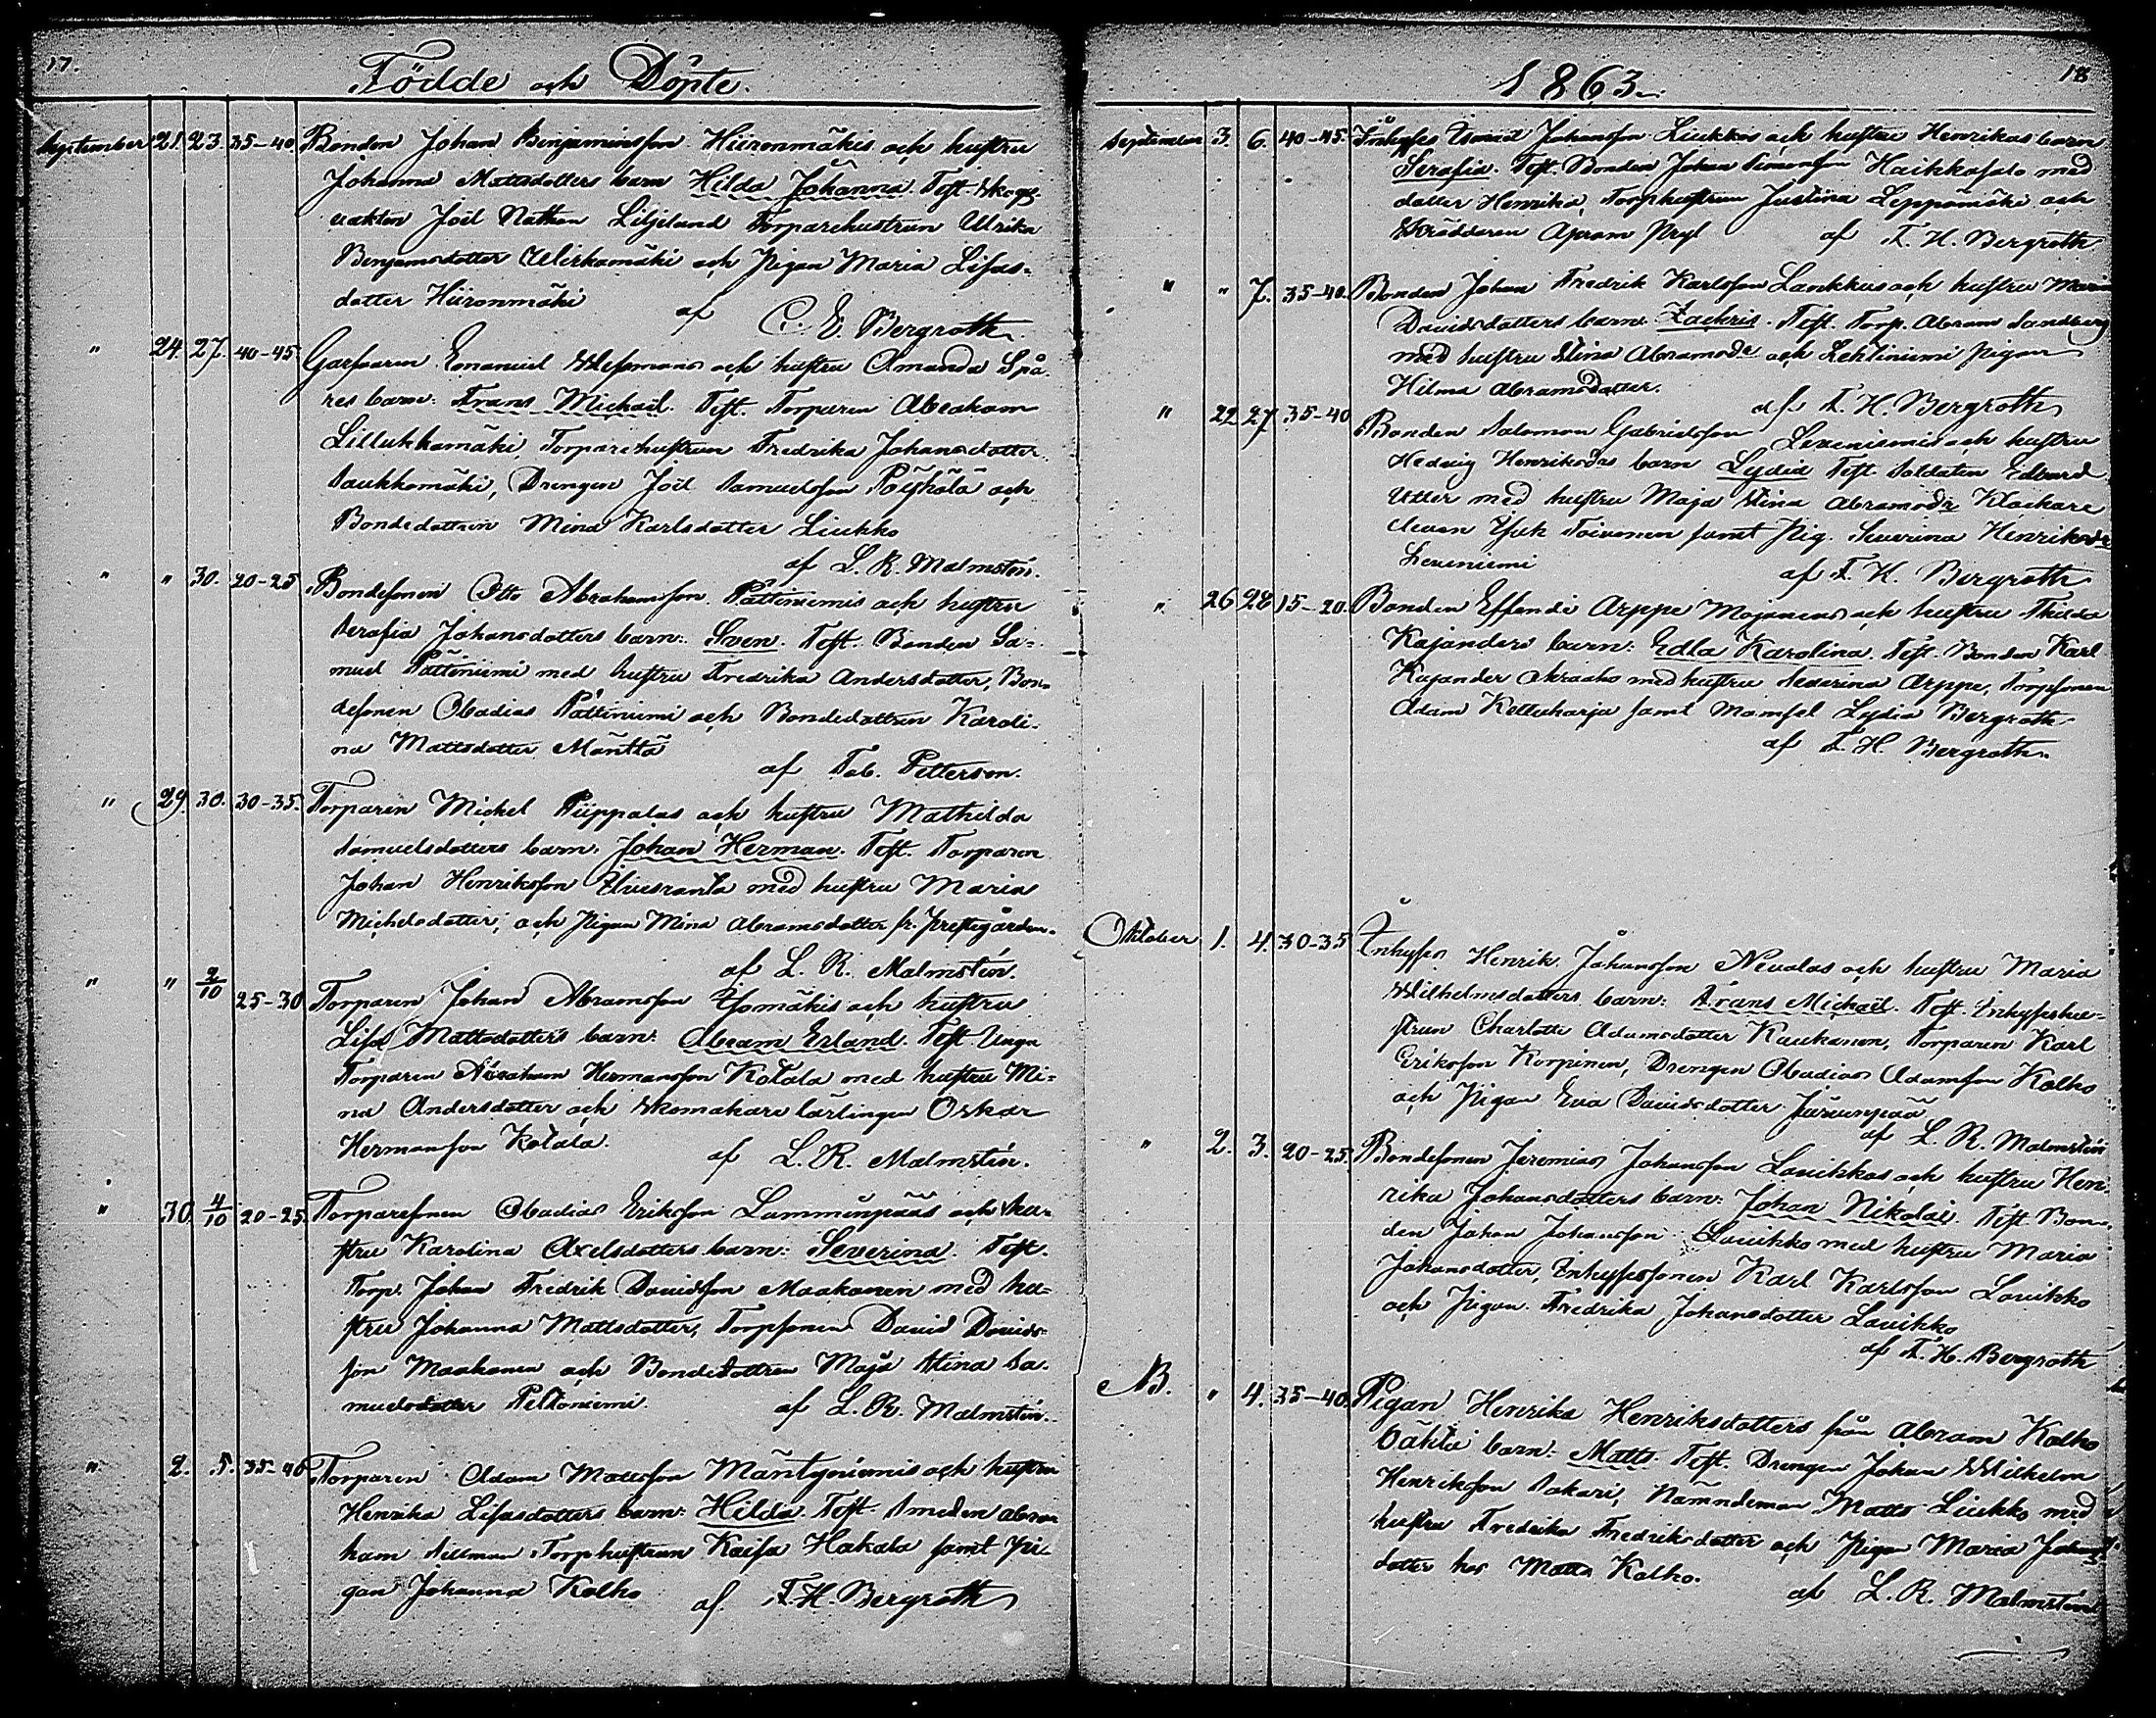 17.
Födde och Döpte.
September 21. 23. 35-40 Bonden Johan Benjaminsson Hiironmäkis och hustru
Johanna Mattsdotters barn Hilda Johanna. Test. Skogs-
vaktar Joel Nathan Liljelund Torparehustrun Ulrika
Benjamsdotter och Pigan Maria Lisas-
dotter Hiironmäki
af C. E. Bergroth
" 24. 27. 40-45 Garfvaren Emanuel och hustru Amanda Spå-
res barn: Frans Michaël. Test. Torparen Abraham
Lillukkamäki, Torparehustrun Fredrika Johansdotter
Saukkomäki, Drengen Joel Samuelsson Pöyhölä och
Bondedottren Mina Karlsdotter Liukko
af L. R. Malmstén.
" " 30. 20-25 Bondesonen Otto Abrahamsson Pättiniemis och hustru
Serafia Johansdotters barn: Sven. Test. Bonden Sa-
muel Pättiniemi med hustru Fredrika Andersdotter, Bon-
desonen Obadias Pättiniemi och Bondedottren Karoli-
na Mattsdotter Mänttä
af Tob. Petterson.
" 29. 30. 30-35. Torparen Mickel Piippalas och hustru Mathilda
Samuelsdotters barn. Johan Herman. Test. Torparen
Johan Henriksson med hustru Maria
Michelsdotter, och Pigan Mina Abramsdotter fr. prestgården.
af L. R. Malmstén.
" " 2/10 25-30 Torparen Johan Abramsson Isomäkis och hustru
Lisa Mattsdotters barn: Abram Erland. Test. Unga
Torparen Abraham Hermansson Kotala med hustru Mi-
na Andersdotter och skomakare lärlingen Oskar
Hermansson Kotala.
af L. R. Malmstén.
" 30. 4/10 20-25. Torparesonen Obadias Eriksson Lamminpääs och hu-
stru Karolina Axelsdotters barn: Severina. Test.
Torp. Johan Fredrik Davidsson Maakanen med hu-
stru Johanna Mattsdotter, Torpsonen David Davids-
son Maakanen och Bondedottren Maja Stina Sa-
muelsdotter Peltoniemi.
af L. R. Malmstén.
" 2. 5. 35-40 Torparen Adam Mattsson Mäntyniemis och hustru
Henrika Lisasdotters barn: Hilda. Test. Smeden Abra-
ham Tillman Torphustrun Kaisa Hakala samt Pi-
gan Johanna Kolho
af F. H. Bergroth
18
1863.
September 3. 6. 40-45. Inhyses Johansson Liukkos och hustru Henrikas barn
Serafia. Test. Bonden Johan Simonsson Haikkasalo med
dotter Henrika, Torphustrun Justina Leppämäki och
Skräddaren Apram Pryl
af F. H. Bergroth
" " 7. 35-40. Bonden Johan Fredrik Karlsson Laukkus och hustru Maria
Davidsdotters barn: Zackris. Test. Torp. Abram Sandberg
med hustru Stina Abramsdr och Lehtiniemi Pigan
Hilma Abramsdotter.
af F. H. Bergroth
" 22 27 35-40 Bonden Salomon Gabrielsson och hustru
Hedvig Henriksdrs barn Lydia Test. Soldaten Edvard
Utter med hustru Maja Stina Abramsdr Klockare
eleven Isak Toivonen samt Pig. Severina Henriksdr
af F. H. Bergroth
" 26 28 15-20. Bonden Effendi Arppe Majanens och hustru Thilda
Kajanders barn: Edla Karolina. Test. Bonden Karl
Kajander Akraaho med hustru Severina Arppe, Torpsonen
Adam Kellukarja samt Mamsel Lydia Bergroth
af F. H. Bergroth.
Oktober 1. 4. 30-35 Inhyses Henrik Johansson Nevalas och hustru Maria
Wilhelmsdotters barn: Frans Michaël. Test. Inhyseshu-
strun Charlotta Adamsdotter Kaukonen, Torparen Karl
Eriksson Korpinen, Drengen Obadias Adamsson Kolho
och Pigan Eva Davidsdotter
af L. R. Malmstén
" 2. 3. 20-25. Bondesonen Jeremias Johansson Lavikkos och hustru Hen-
rika Johansdotters barn: Johan Nikolai. Test. Bon-
den Johan Johansson Lavikko med hustru Maria
Johansdotter, Inhysessonen Karl Karlsson Lavikko
och Pigan Fredrika Johansdotter Lavikko
af F. H. Bergroth
NB. " 4. 35-40. Pigan Henrika Henriksdotters från Abram Kolho
oäkta barn: Matts. Test. Drengen Johan Wilhelm
Henriksson Sakari, Nämndeman Matts Liukko med
hustru Fredrika Fredriksdotter och Pigan Maria Johans-
dotter hos Matts Kolho.
af L. R. Malmstén